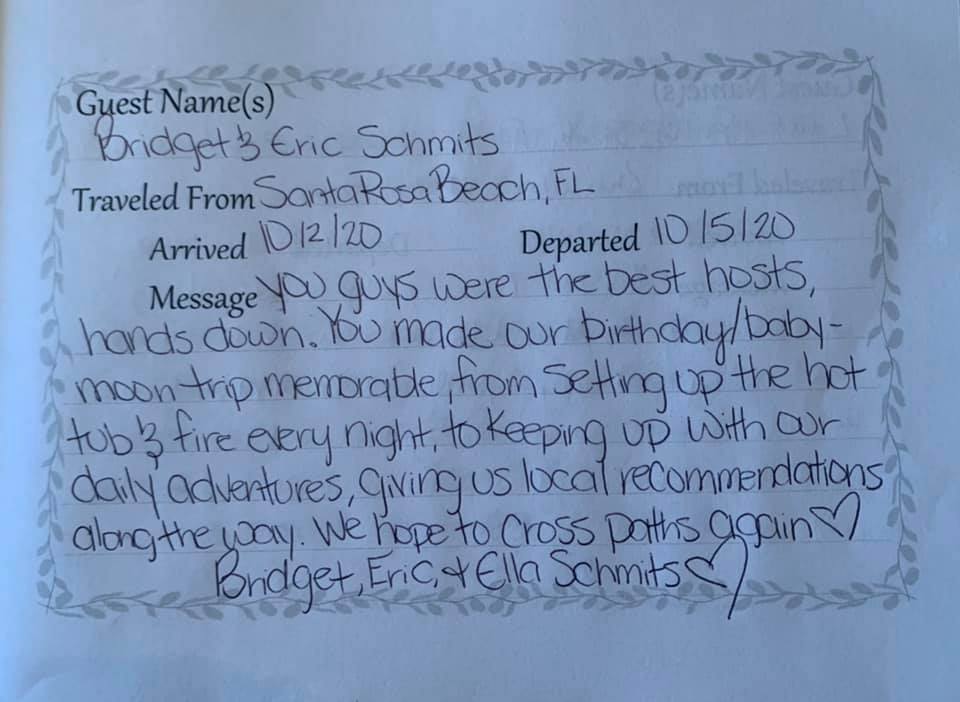 Guest Name(s)
Bridget & Eric Schmits
Traveled From Santa Rosa Beach, FL
Arrived 10/2/20 Departed 10/5/20
Message You guys were the best hosts,
hands down. You made our birthday/baby-
moon trip memorable, from setting up the hot
tub & fire every night, to keeping up with our
daily adventures, giving us local recommendations
along the way. We hope to cross paths again♡
Bridget, Eric, & Ella Schmits♡